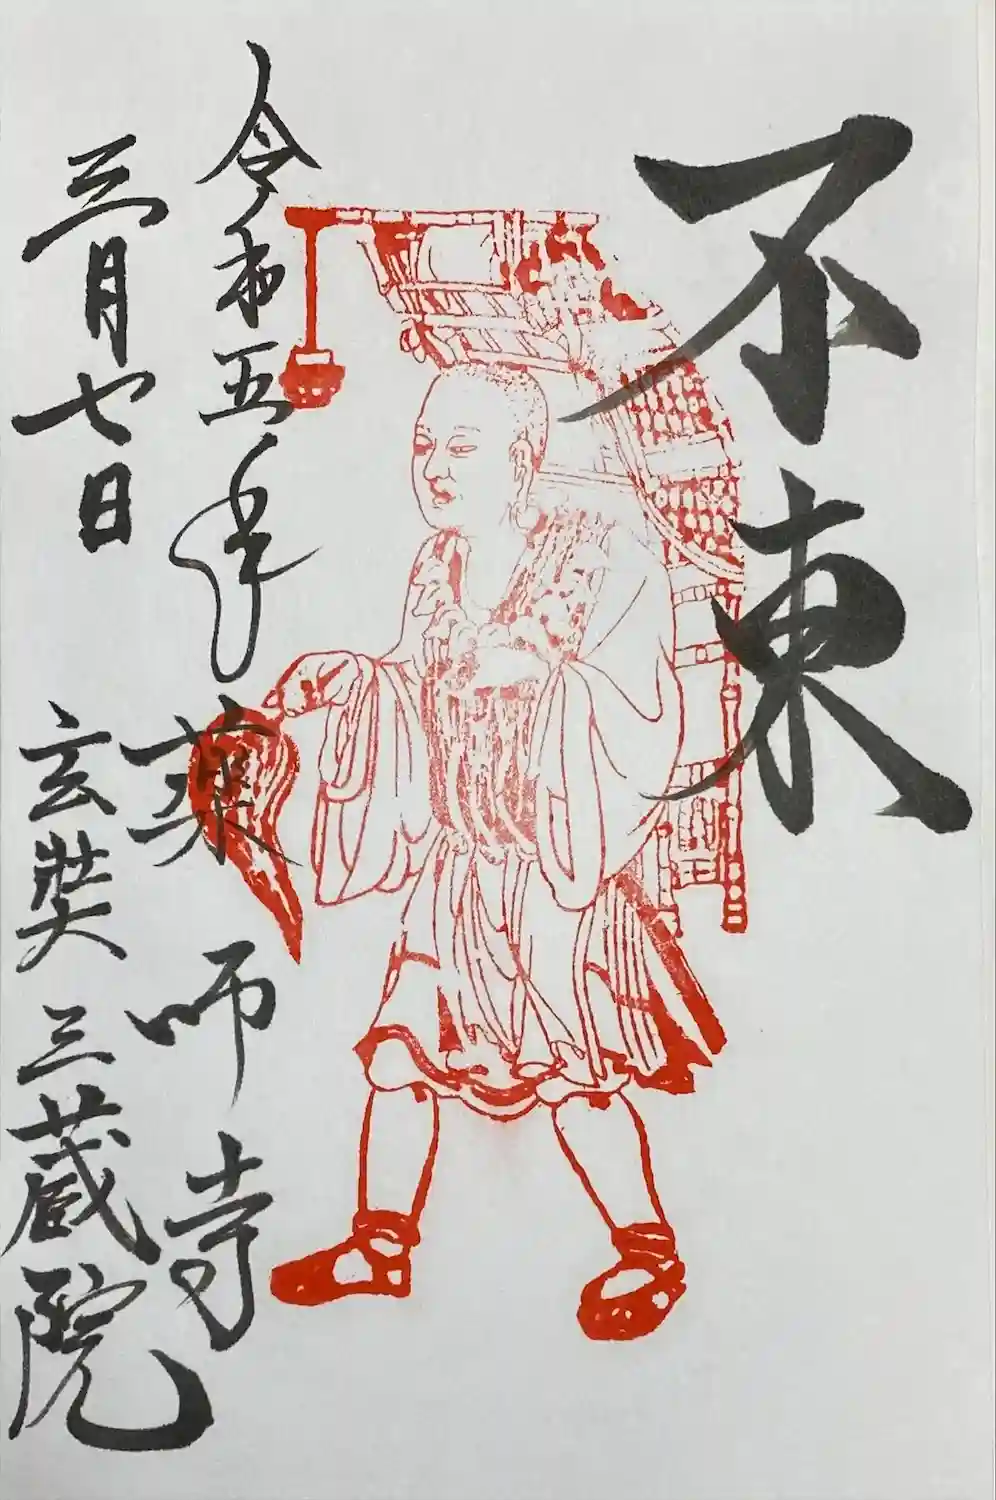 不東
令和五年
三月七日
薬師寺
玄奘三蔵院